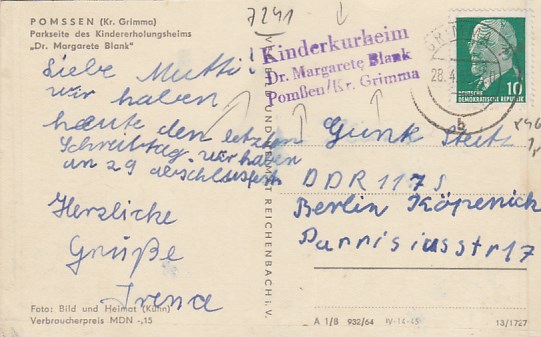 POMSSEN (Kr. Grimma)
Parkseite des Kindererholungsheims
„Dr. Margarete Blank"
7241
Kinderkurheim
Dr. Margarete Blank
Pomßen/Kr. Grimma
28.4
b
10
DEUTSCHE
DEMOKRATISCHE REPUBLIK
Liebe Mutti!
wir haben
heute den letzten
Schreibtag. wir haben
an 29 abschlussfest
Herzliche
Grüße
Irena
Gunk Steitz
DDR 117 S
Berlin Köpenick
Parrisiusstr 17
BILD UND HEIMAT REICHENBACH I. V.
Foto: Bild und Heimat (Kühn)
Verbraucherpreis MDN -,15
A 1/B 932/64 IV-14-45
13/1727